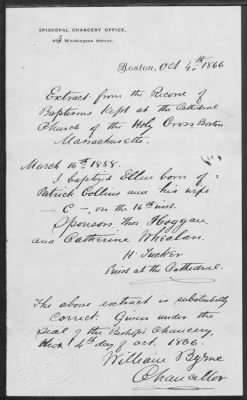 EPISCOPAL CHANCERY OFFICE,
Washington Street.
Boston, Oct 4th 1866
Extract from the Record of
Baptisms kept at the Cathedral
Church of the Holy Cross Boston
Massachusetts.
March 16th 1858.
I baptized Ellen born of
Patrick Collins and his wife
— C —, on the 16th inst.
Sponsors, Thos Hoggan
and Catherine Whealan.
H. Tucker
Priest at the Cathedral.
The above extract is substantially
correct. Given under the
seal of the Bishop's Chancery,
this 4th day of Oct. 1866.
William Byrne
Chancellor